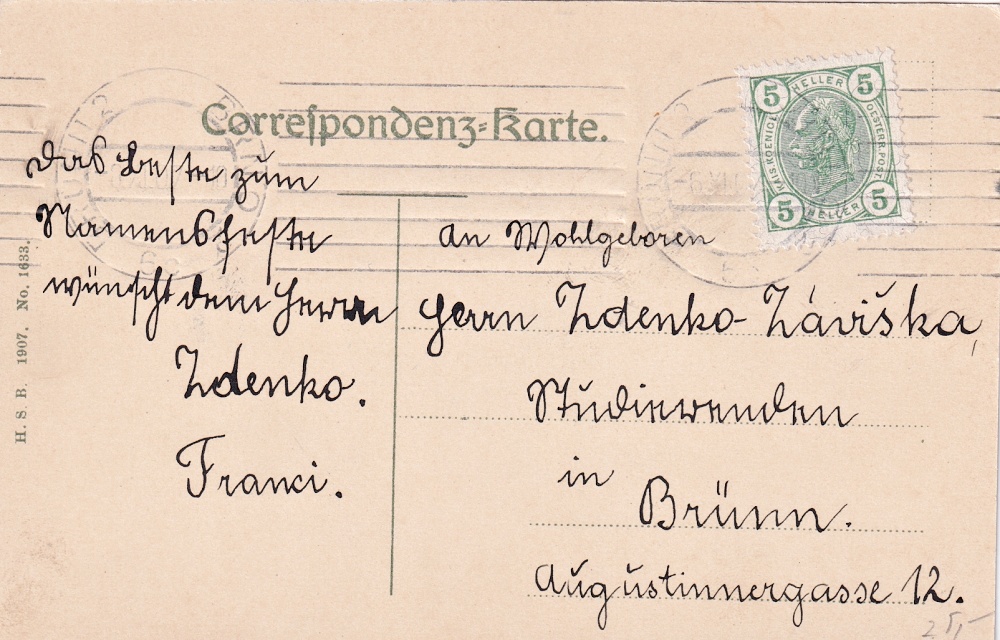 Correspondenz-Karte.
5 HELLER 5
KAIS. KOENIGL.
OESTERR. POST
5 HELLER 5
das beste zum
Namensfeste
wünscht dem Herrn
Zdenko.
Franci.
H. S. B. 1907. No. 1633.
An Wohlgeboren
Herrn Zdenko-Záviška,
Studierenden
in
Brünn.
Augustinnergasse 12.
25,-